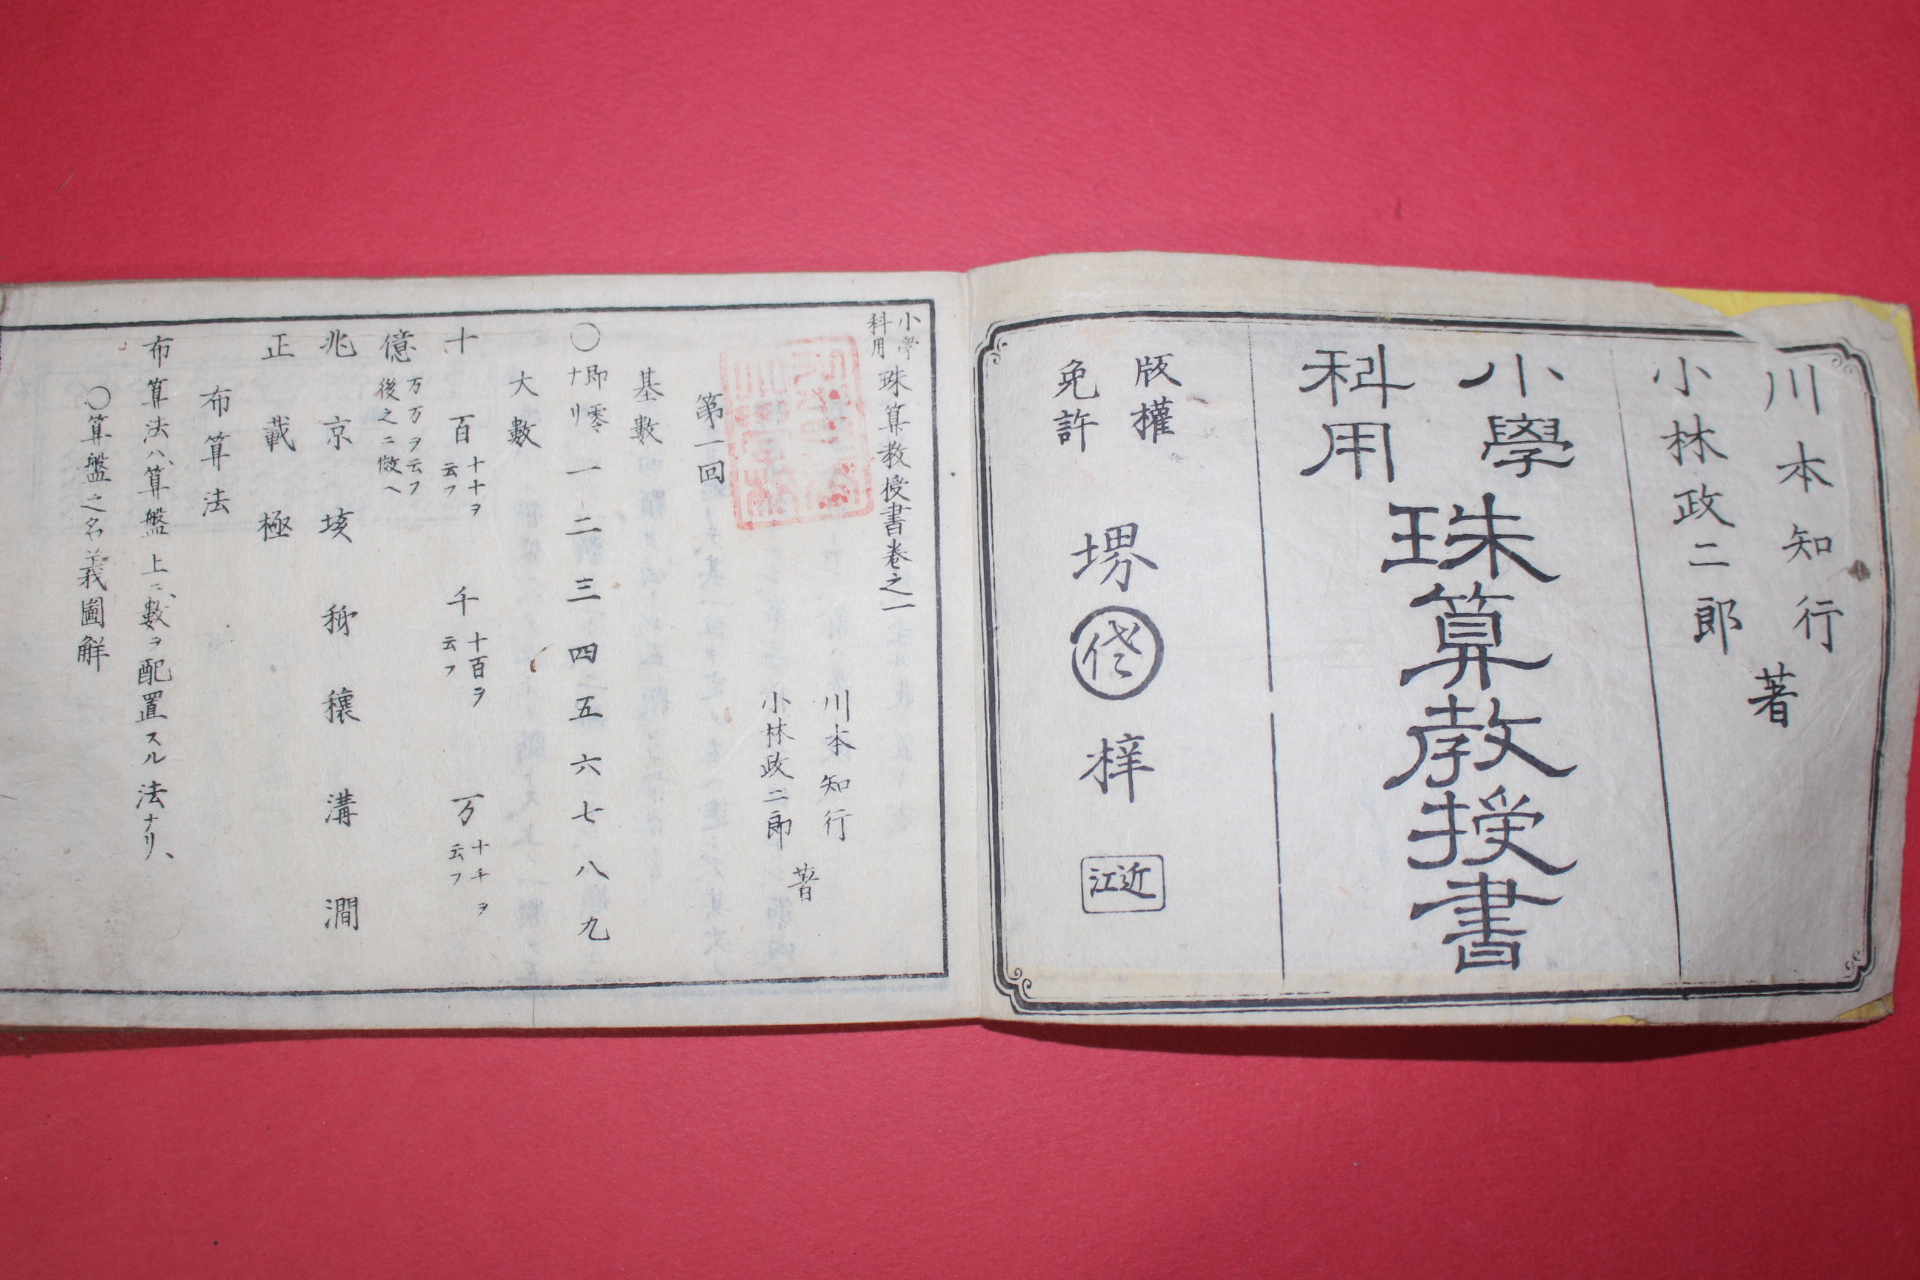 川本知行
小林政二郎
著
小學
科用
珠算教授書
版權
免許
堺
梓
近江
小學
科用
珠算教授書卷之一
川本知行
小林政二郎
著
第一回
基數
〇即零ナリ 一 二 三 四 五 六 七 八 九
大數
十 百十十ヲ云フ 千十百ヲ云フ 万十千ヲ云フ
億万万ヲ云フ後之ニ倣ヘ
兆 京 垓 秭 穰 溝 澗
正 載 極
布算法
布算法ハ、算盤上ニ、數ヲ配置スル法ナリ、
〇算盤之名義圖解